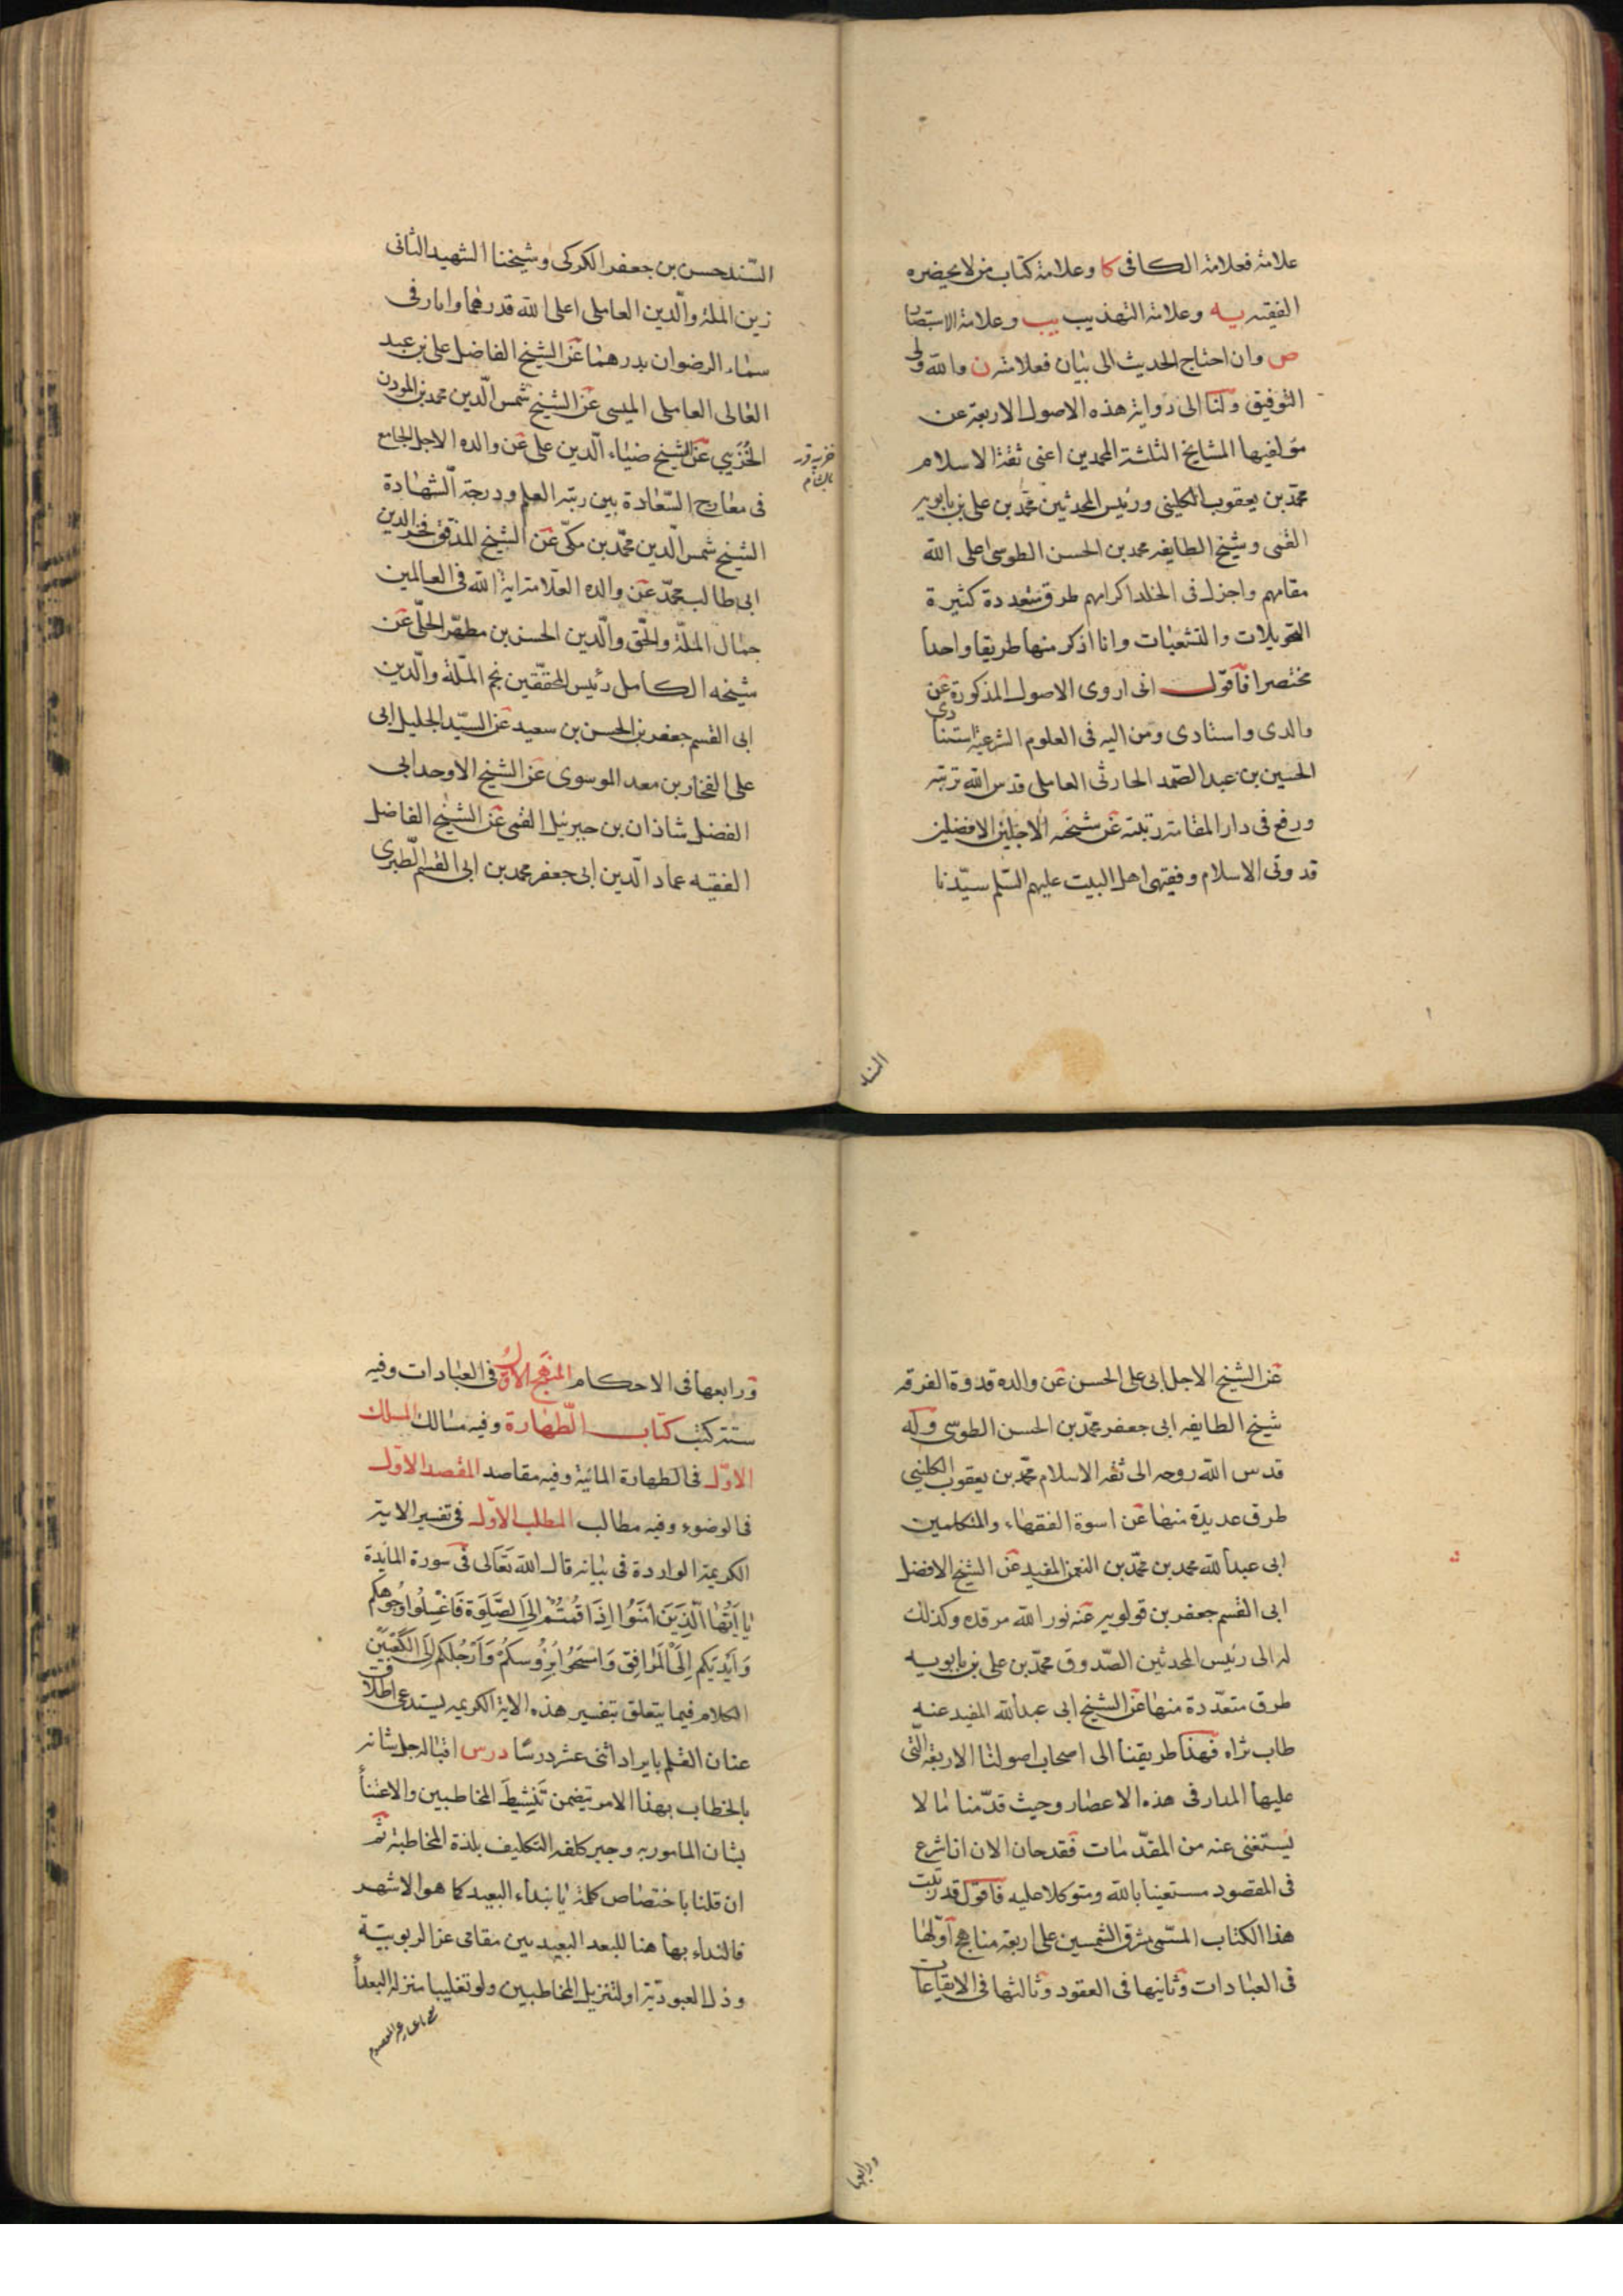 علامة فعلامة الكافى كا وعلامة كتاب من لا يحضره
الفقيه يه وعلامة التهذيب يب وعلامة الاستبصار
ص وان احتاج الحديث الى بيان فعلامته ن والله ولى
التوفيق ولنا الى رواية هذه الاصول الاربعة عن
مؤلفيها المشايخ الثلثة المحمدين اعنى ثقة الاسلام
محمّد بن يعقوب الكلينى ورئيس المحدثين محمّد بن على بن بابويه
القمى وشيخ الطايفه محمد بن الحسن الطوسى اعلى الله
مقامهم واجزل فى الخلد اكرامهم طرق متعددة كثيرة
التحويلات والتشعبات وانا اذكر منها طريقا واحدا
مختصرا فاقول انى اروى الاصول المذكورة عن
والدى واستادى ومن اليه فى العلوم الشرعية استنادى
الحسين بن عبد الصّمد الحارثى العاملى قدس الله تربته
ورفع فى دار المقامة رتبته عن شيخه الاجلين الافضلين
قدوتى الاسلام وفقيهى اهل البيت عليهم السّلم سيّدنا
السّند حسن بن جعفر الكركى وشيخنا الشهيد الثانى
زين الملة والّدين العاملى اعلى الله قدرهما وانار فى
سماء الرضوان بدرهما عن الشيخ الفاضل على بن عبد
العالى العاملى الميسى عن الشيخ شمس الّدين محمد بن الموذن
الخُزَيبى عن الشيخ ضياء الّدين على عن والده الاجل الجامع
فى معارج السّعادة بين رتبة العلم ودرجة الشّهادة
الشيخ شمس الّدين محمّد بن مكّى عن الشيخ المدقق فخر الدين
ابى طالب محمّد عن والده العلّامة اية الله فى العالمين
جمال الملّة والحّق والّدين الحسن بن مطهّر الحلّى عن
شيخه الكامل رئيس المحققّين نجم الملّة والّدين
ابى القسم جعفر بن الحسن بن سعيد عن السيّد الجليل ابى
على الفخار بن معد الموسوى عن الشيخ الاوحد ابى
الفضل شاذان بن جبرئيل القمى عن الشيخ الفاضل
الفقيه عماد الّدين ابى جعفر محمد بن ابى القسم الّطبرى
عن الشيخ الاجل ابى على الحسن عن والده قدوة الفرقه
شيخ الطايفه ابى جعفر محمّد بن الحسن الطوسى وله
قدس الله روحه الى ثقه الاسلام محمّد بن يعقوب الكلينى
طرق عديدة منها عن اسوة الفقهاء والمتكلمين
ابى عبد الله محمد بن محمّد بن النعمن المفيد عن الشيخ الافضل
ابى القسم جعفر بن قولويه عنه نور الله مرقده وكذلك
له الى رئيس المحدثين الصّدوق محمّد بن على بن بابويه
طرق متعدّدة منها عن الشيخ ابى عبد الله المفيد عنه
طاب ثراه فهذا طريقنا الى اصحاب اصولنا الاربعة الّتى
عليها المدار فى هذه الاعصار وحيث قدّمنا ما لا
يستغنى عنه من المقدّمات فقد حان الان ان اشرع
فى المقصود مستعينا بالله ومتوكلا عليه فاقول قد رتبت
هذا الكتاب المسّمى بمشرق الشمسين على اربعة مناهج اوّلها
فى العبادات وثانيها فى العقود وثالثها فى الايقاعات
ورابعها
ورابعها فى الاحكام المنهج الاوّل فى العبادات وفيه
ستة كتب كتاب الّطهارة وفيه مسالك المسلك
الاوّل فى الطهارة المائية وفيه مقاصد المقصد الاوّل
فى الوضوء وفيه مطالب المطلب الاوّل فى تفسير الاية
الكريمة الواردة فى بيانه قال الله تَعَالى فى سورة المائدة
يَا اَيُّهَا الَّذِينَ امَنُوا اِذَا قُمتُمْ اِلَى الصَّلوَة فَاغْسِلُوا وُجُوهكم
وَاَيْدِيَكم اِلَى الْمَرَافِق وَامْسَحُوا بِرُؤسِكُمْ وَاَرْجُلَكم اِلَى الكَعْبَيْن
الكلام فيما يتعلق بتفسير هذه الاية الكريمه يستدعى اطلاق
عنان القلم بايراد اثنى عشر درسًا درس اقباله جل شانه
بالخطاب بهذا الامر يتضمن تَنشِيطَ المخاطبين والاعتناء
بشان المامور به وجبر كلفه التكليف بلذة المخاطبة ثم
ان قلنا باختصاص كلمة يا بنداء البعيد كما هو الاشهر
فالنداء بها هنا للبعد البعيد بين مقامى عز الربوبيّة
وذل العبوديّة او لتنزيل المخاطبين ولو تغليبا منزله البعداء